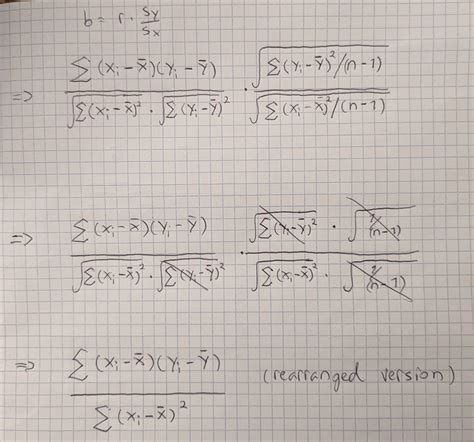 b = r · Sy/Sx
=> Σ(xi-x̄)(yi-ȳ) / √Σ(xi-x̄)² · √Σ(yi-ȳ)² · √Σ(yi-ȳ)²/(n-1) / √Σ(xi-x̄)²/(n-1)
=> Σ(xi-x̄)(yi-ȳ) / √Σ(xi-x̄)² · √Σ(yi-ȳ)² · √Σ(yi-ȳ)² · √1/(n-1) / √Σ(xi-x̄)² · √1/(n-1)
=> Σ(xi-x̄)(yi-ȳ) / Σ(xi-x̄)² (rearranged version)